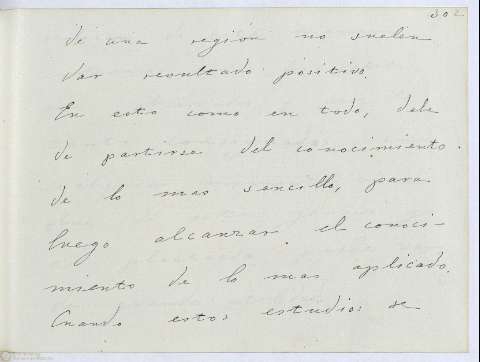 302
de una región no suelen
dar resultado positivo.
En esto como en todo, debe
de partirse del conocimiento
de lo mas sencillo, para
luego alcanzar el conoci-
miento de lo mas aplicado.
Cuando estos estudios se